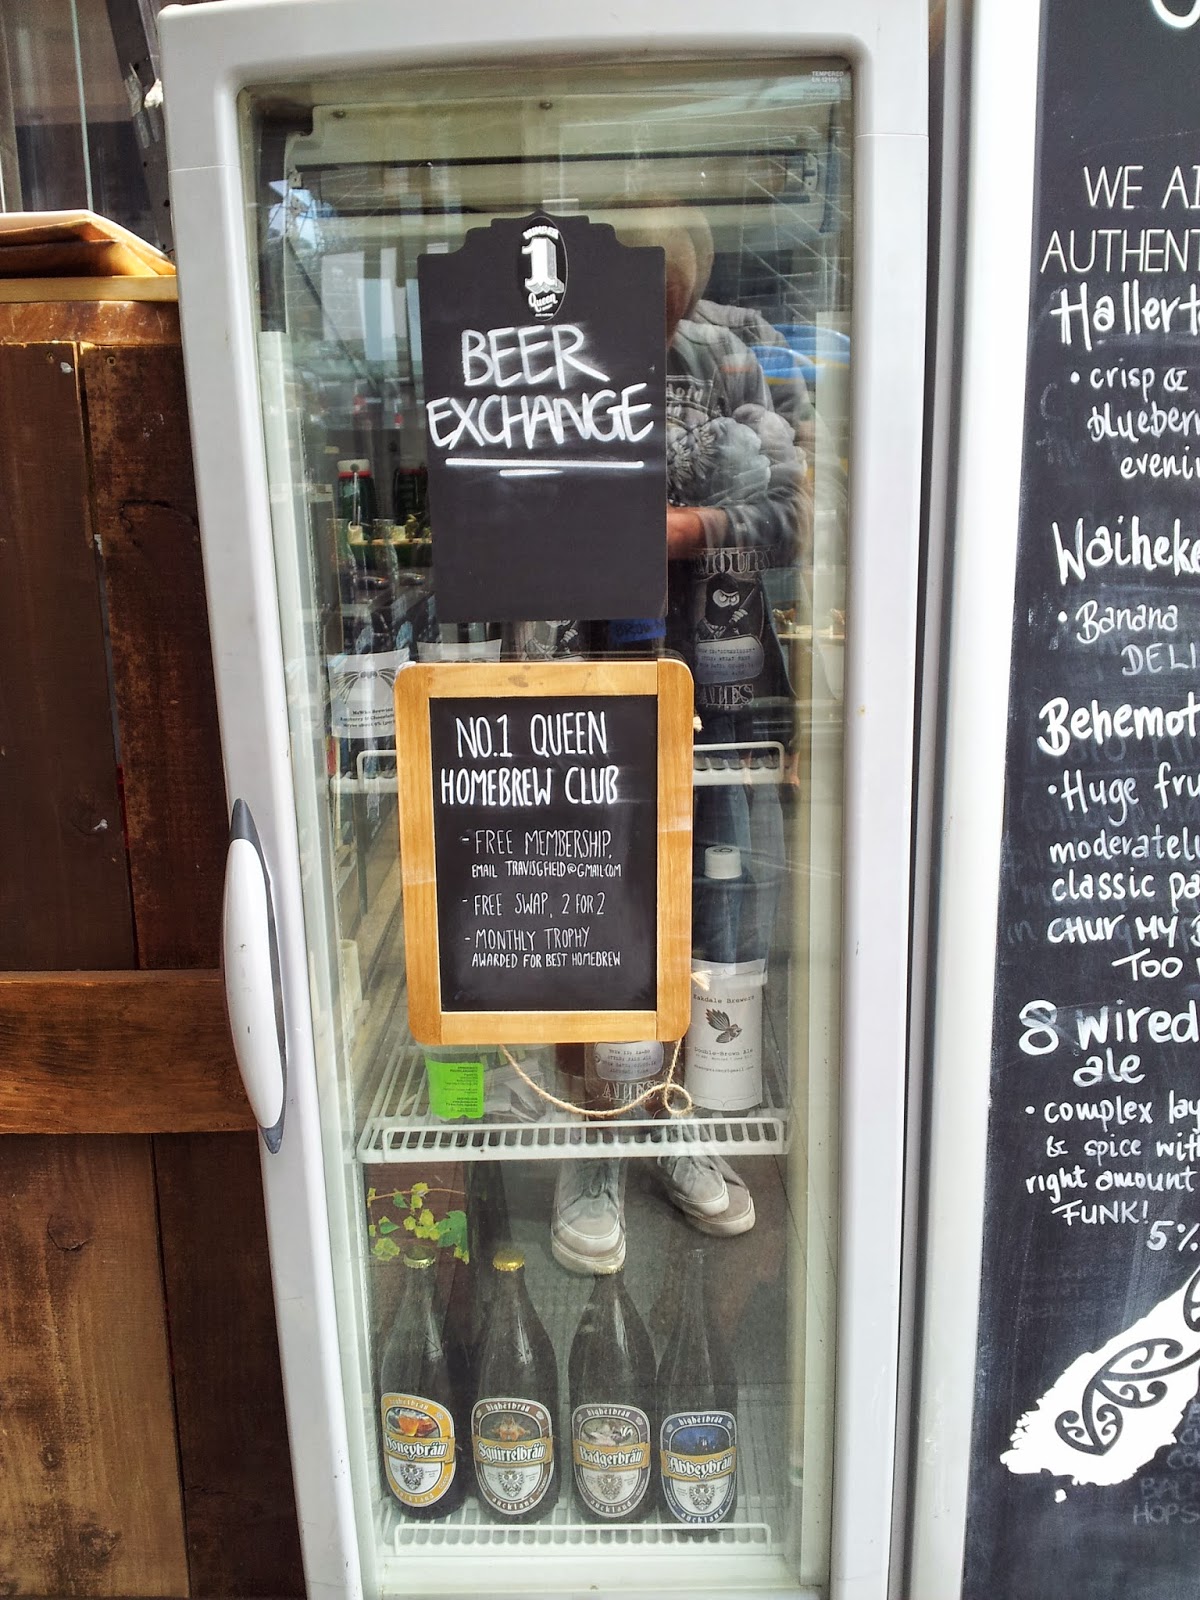 TEMPERED
NUMBER
1
Queen
BEER
EXCHANGE
NO.1 QUEEN
HOMEBREW CLUB
- FREE MEMBERSHIP,
EMAIL TRAVISGFIELD@GMAIL.COM
- FREE SWAP, 2 FOR 2
- MONTHLY TROPHY
AWARDED FOR BEST HOMEBREW
ALES
Oakdale Brewers
Double-Brown Ale
ALES
bighetbräu
Honeybräu
auckland
bighetbräu
Squirrelbräu
auckland
bighetbräu
Badgerbräu
auckland
bighetbräu
Abbeybräu
auckland
WE AI
AUTHENT
Hallert
• crisp &
blueber
eveni
Waiheke
• Banana
DELI
Behemot
• Huge fru
moderately
classic pa
CHUR MY
TOO
8 wired
ale
• complex lay
& spice wit
right amount
FUNK!
5%
HOPS